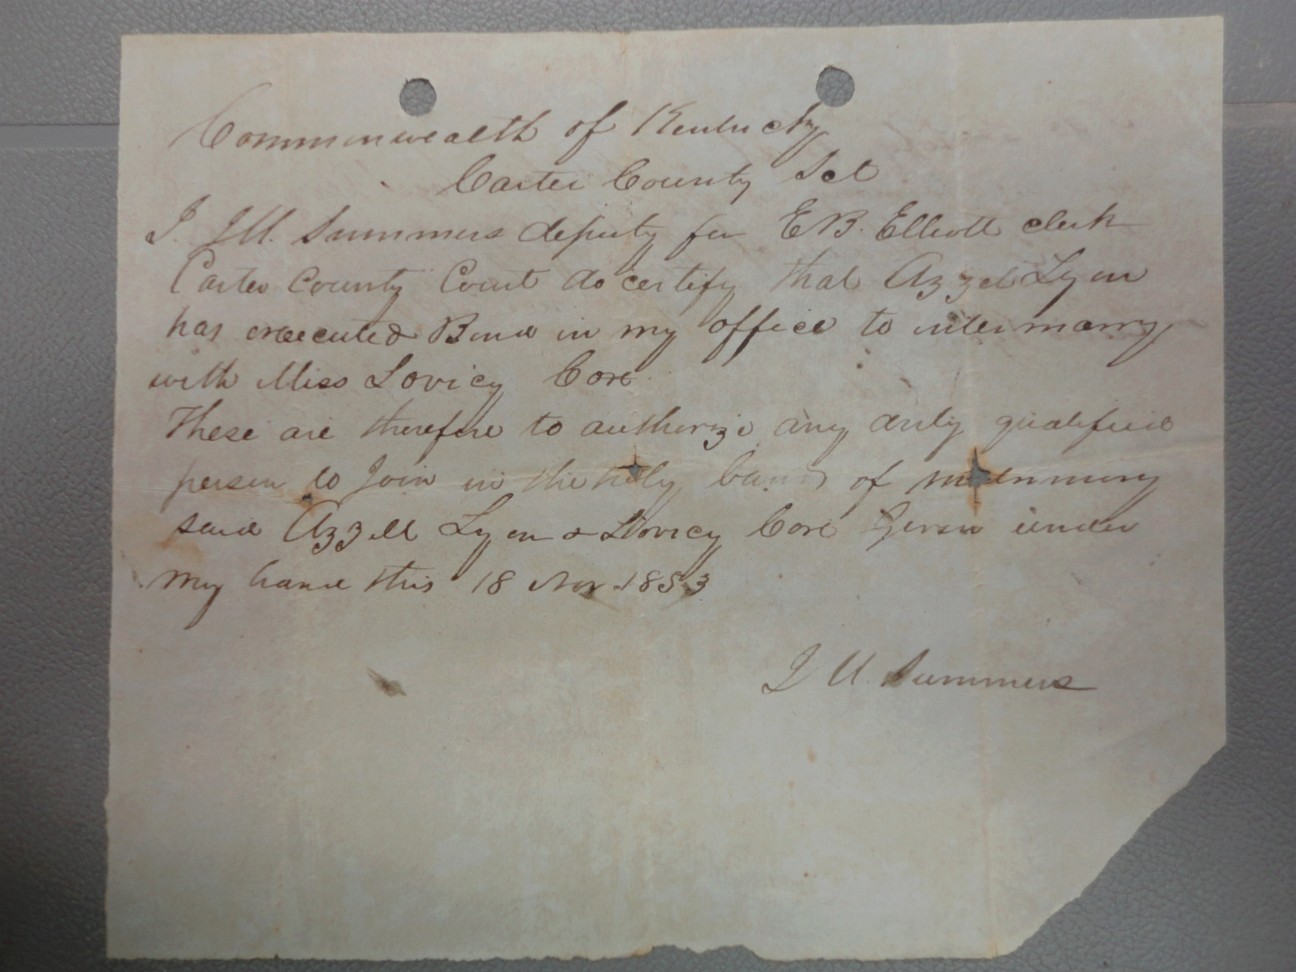 Commonwealth of Kentucky
Carter County Sct
I. J.M. Summers deputy for E.B. Elliott clerk
Carter County Court do certify that Azzel Lyon
has executed Bond in my office to intermarry
with Miss Lovicy Cox
These are therefore to authorize any duly qualified
person to Join in the holy bands of
said Azzell Lyon & Lovicy Cox Given under
my hand this 18 Nov 1853
J M. Summers